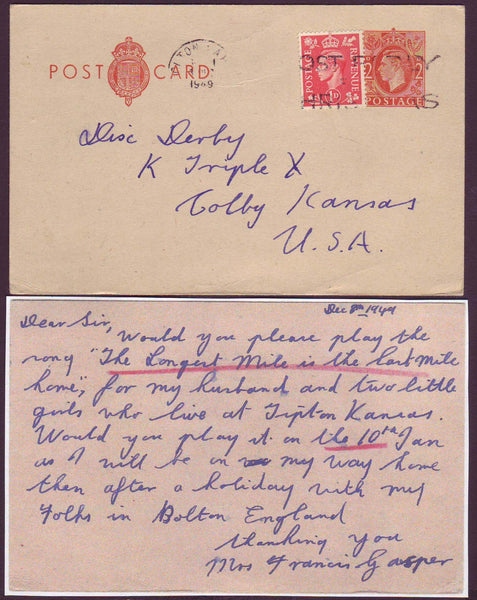 POST CARD
1949
POSTAGE REVENUE
2 2
POSTAGE
POST EARLY
Disc Derby
K Triple X
Colby Kansas
U.S.A.
Dec 8th 1949
Dear Sir,
Would you please play the
song "The Longest Mile is the last mile
home", for my husband and two little
girls who live at Tipton Kansas.
Would you play it on the 10th Jan
as I will be on my way home
then after a holiday with my
Folks in Bolton England
thanking you
Mrs Francis Gasper